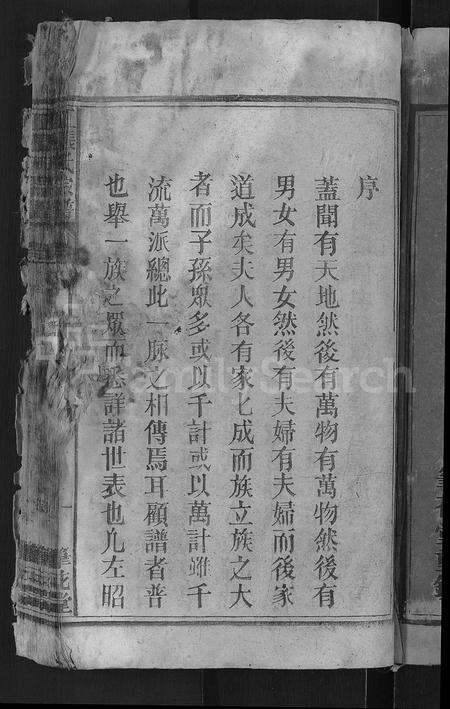 序
蓋聞有天地然後有萬物有萬物然後有
男女有男女然後有夫婦有夫婦而後家
道成矣夫人各有家匕成而族立族之大
者而子孫眾多或以千計或以萬計雖千
流萬派總此一脉之相傳焉耳顧譜者普
也舉一族之眾而悉詳諸世表也凡左昭
FamilySearch